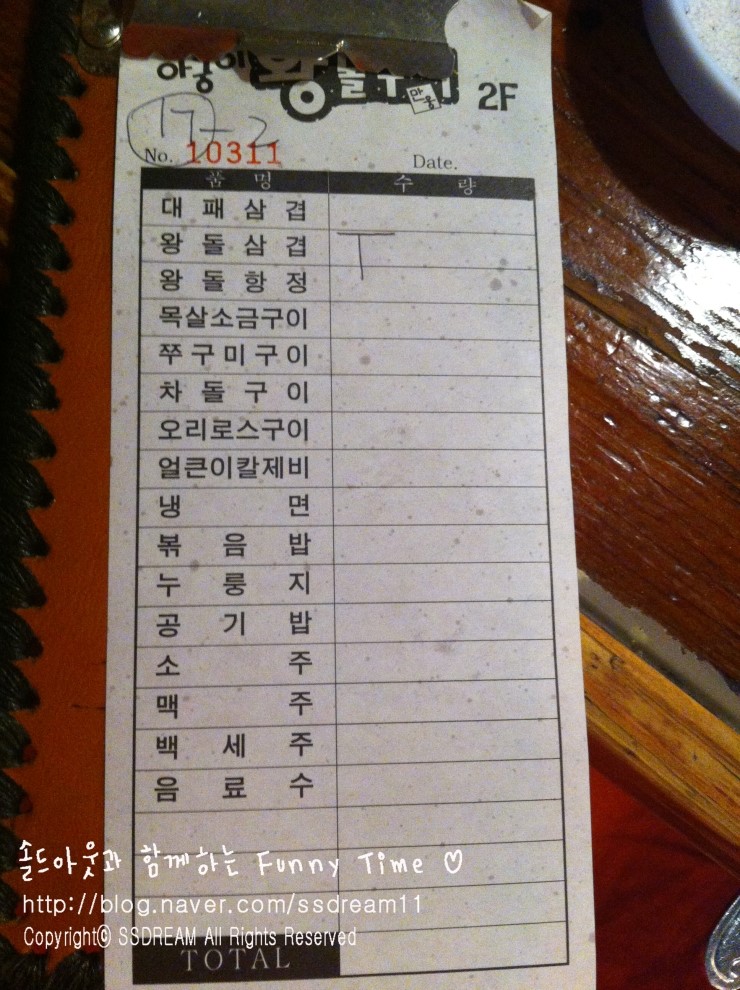 아궁이 왕돌구이 2F
만옹
17-2
No. 10311 Date.
품 명 수 량
대 패 삼 겹
왕 돌 삼 겹
왕 돌 항 정
목살소금구이
쭈구미구이
차 돌 구 이
오리로스구이
얼큰이칼제비
냉 면
볶 음 밥
누 룽 지
공 기 밥
소 주
맥 주
백 세 주
음 료 수
솔드아웃과 함께하는 Funny Time ♡
http://blog.naver.com/ssdream11
Copyright© SSDREAM All Rights Reserved
TOTAL